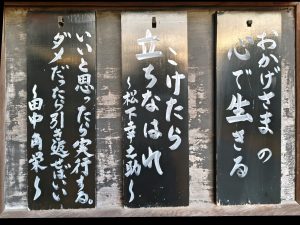 おかげさまの
心で生きる
こけたら
立ちなはれ
〜松下幸之助〜
いいと思ったら実行する。
ダメだったら引き返せばいい
〜田中角栄〜